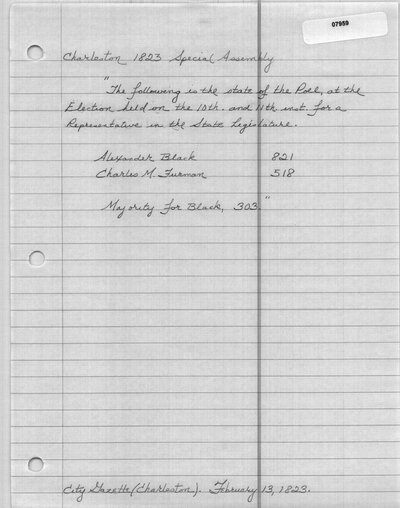 07959
Charleston 1823 Special Assembly
"The following is the state of the Poll, at the
Election held on the 10th. and 11th inst. for a
Representative in the State Legislature.
Alexander Black 821
Charles M. Furman 518
Majority for Black, 303."
City Gazette (Charleston). February 13, 1823.